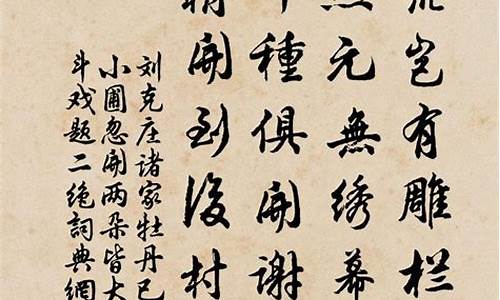 岂有雕栏
元無绣幕
種俱開谢
開到後村
刘克庄诸家牡丹已
小圃忽開两朵皆大
斗戏题二绝词典網